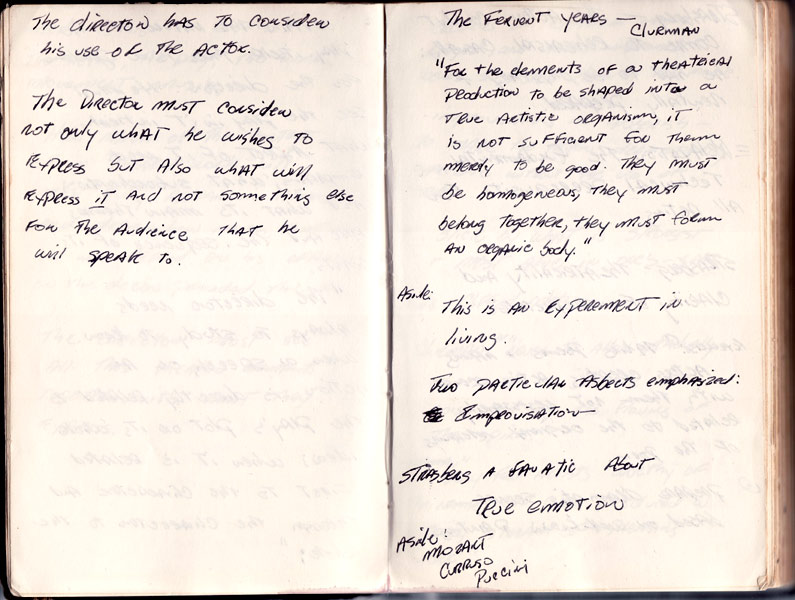 The director has to consider
his use of the Actor.
The Director must consider
not only what he wishes to
Express but Also what will
express it And not something else
For the Audience that he
will speak to.
The Fervent Years —
Clurman
"For the elements of a theatrical
production to be shaped into a
True Artistic organism, it
is not sufficient for them
merely to be good. They must
be homogeneous, they must
belong together, they must form
An organic body."
Aside:
This is An Experement in
living.
Two particular Aspects emphasized:
Improvisation—
Strasberg A fanatic About
True emotion
Aside:
Mozart
Carruso
Puccini